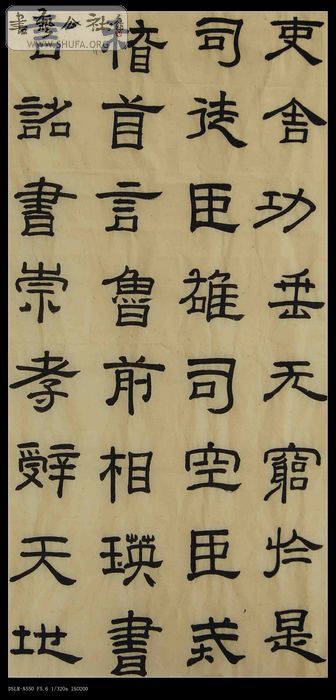 吏舍功垂无窮於是
司徒臣雄司空臣戒
稽首言魯前相瑛書
詔書崇孝辭天地
書藝公社
WWW.SHUFA.ORG
DSLR-A550 F5.6 1/320s ISO200